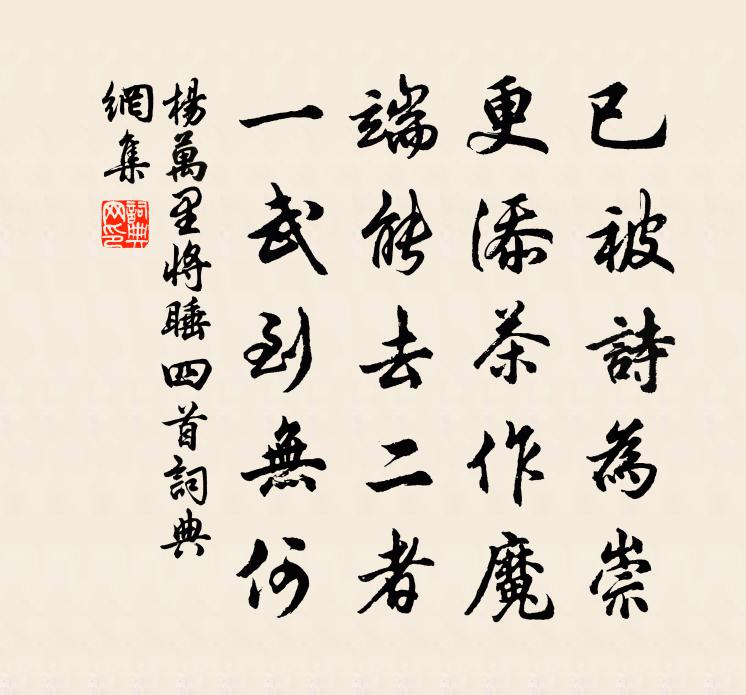 已被詩為崇
更添茶作魔
端能去二者
一武到無何
楊萬里將睡四首詞典
網集
詞典
网印